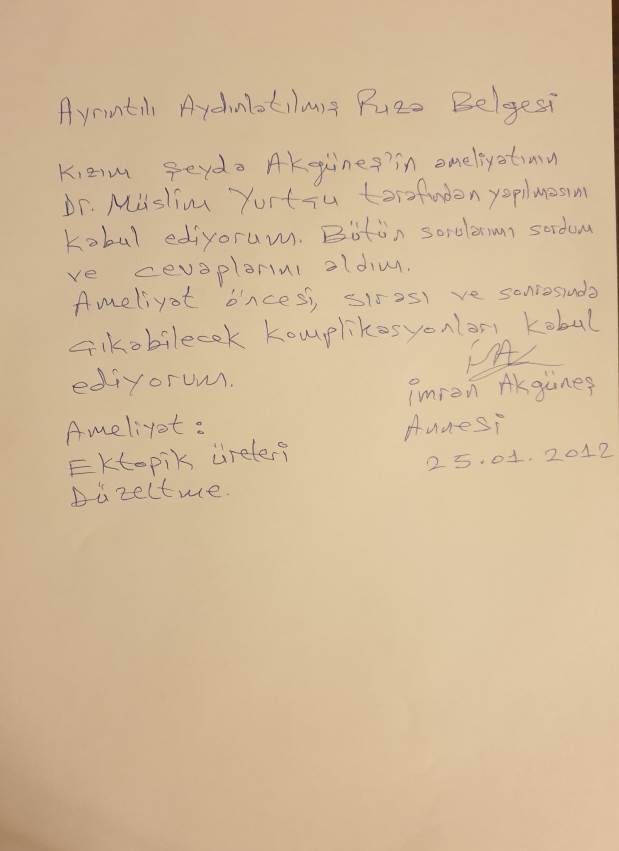 Ayrıntılı Aydınlatılmış Rıza Belgesi
Kızım Şeyda Akgüneş'in ameliyatının
Dr. Müslim Yurtçu tarafından yapılmasını
kabul ediyorum. Bütün sorularımı sordum
ve cevaplarını aldım.
Ameliyat öncesi, sırası ve sonrasında
çıkabilecek komplikasyonları kabul
ediyorum.
İmran Akgüneş
Annesi
25.01.2012
Ameliyat:
Ektopik üreteri
Düzeltme.